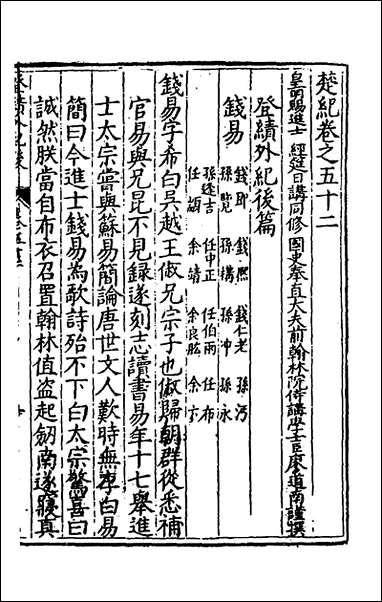 楚紀卷之五十二
皇明賜進士 經筵日講同修 國史奉直大夫前翰林院侍講學士臣廖道南謹撰
登績外紀後篇
錢易 錢即 錢熙 錢仁老 孫沔
孫覽 孫構 孫沖 孫永
孫逢吉 任中正 任伯雨 任布
任顓 余靖 余良肱 余卞
錢易字希白吳越王俶兄宗子也俶歸朝群從悉補
官易與兄昆不見錄遂刻志讀書易年十七舉進
士太宗嘗與蘇易簡論唐世文人歎時無李白易
簡曰今進士錢易爲歌詩殆不下白太宗驚喜曰
誠然朕當自布衣召置翰林值盗起劒南遂寢真